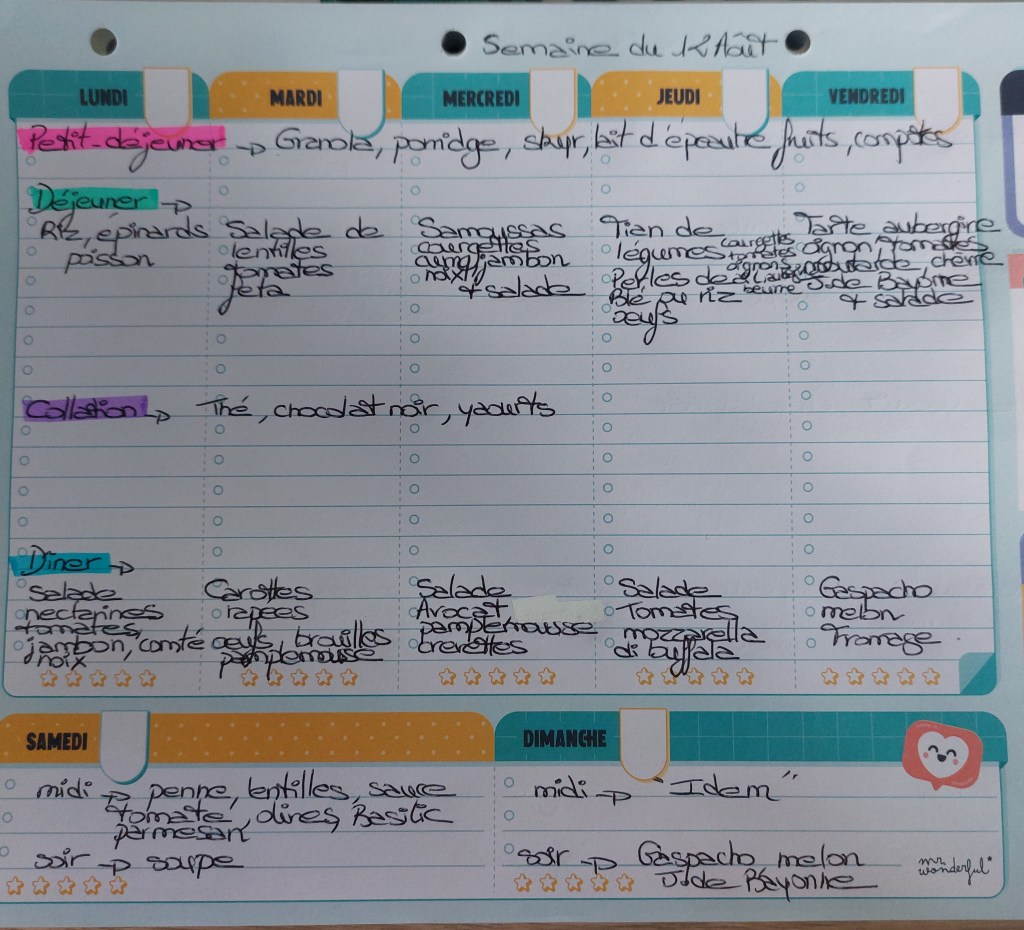 Semaine du 12 Août
LUNDI MARDI MERCREDI JEUDI VENDREDI
Petit-déjeuner → Granola, porridge, skyr, lait d'épeautre fruits, compotes
Déjeuner →
Riz, épinards
poisson
Salade de
lentilles
tomates
feta
Samoussas
courgettes
curry jambon
noix
+ salade
Tian de
légumes
courgettes
tomates
oignons
Perles de
Blé ou riz
oeufs
Tarte aubergine
oignon, tomates
moutarde chèvre
J. de Bayonne
+ salade
Collation → Thé, chocolat noir, yaourts
Dîner →
Salade
nectarines
tomates,
jambon, comté
noix
Carottes
rapees
oeufs, brouilles
pamplemousse
Salade
Avocat
pamplemousse
crevettes
Salade
Tomates
mozzarella
di buffala
Gaspacho
melon
fromage
SAMEDI
midi → penne, lentilles, sauce
tomate, olives, Basilic
parmesan
soir → soupe
DIMANCHE
midi → "Idem"
soir → Gaspacho, melon
J. de Bayonne
mr. wonderful*